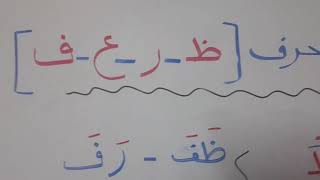 حرف [ظ - ر - ع - ف]
ظَفَ - رَفَ